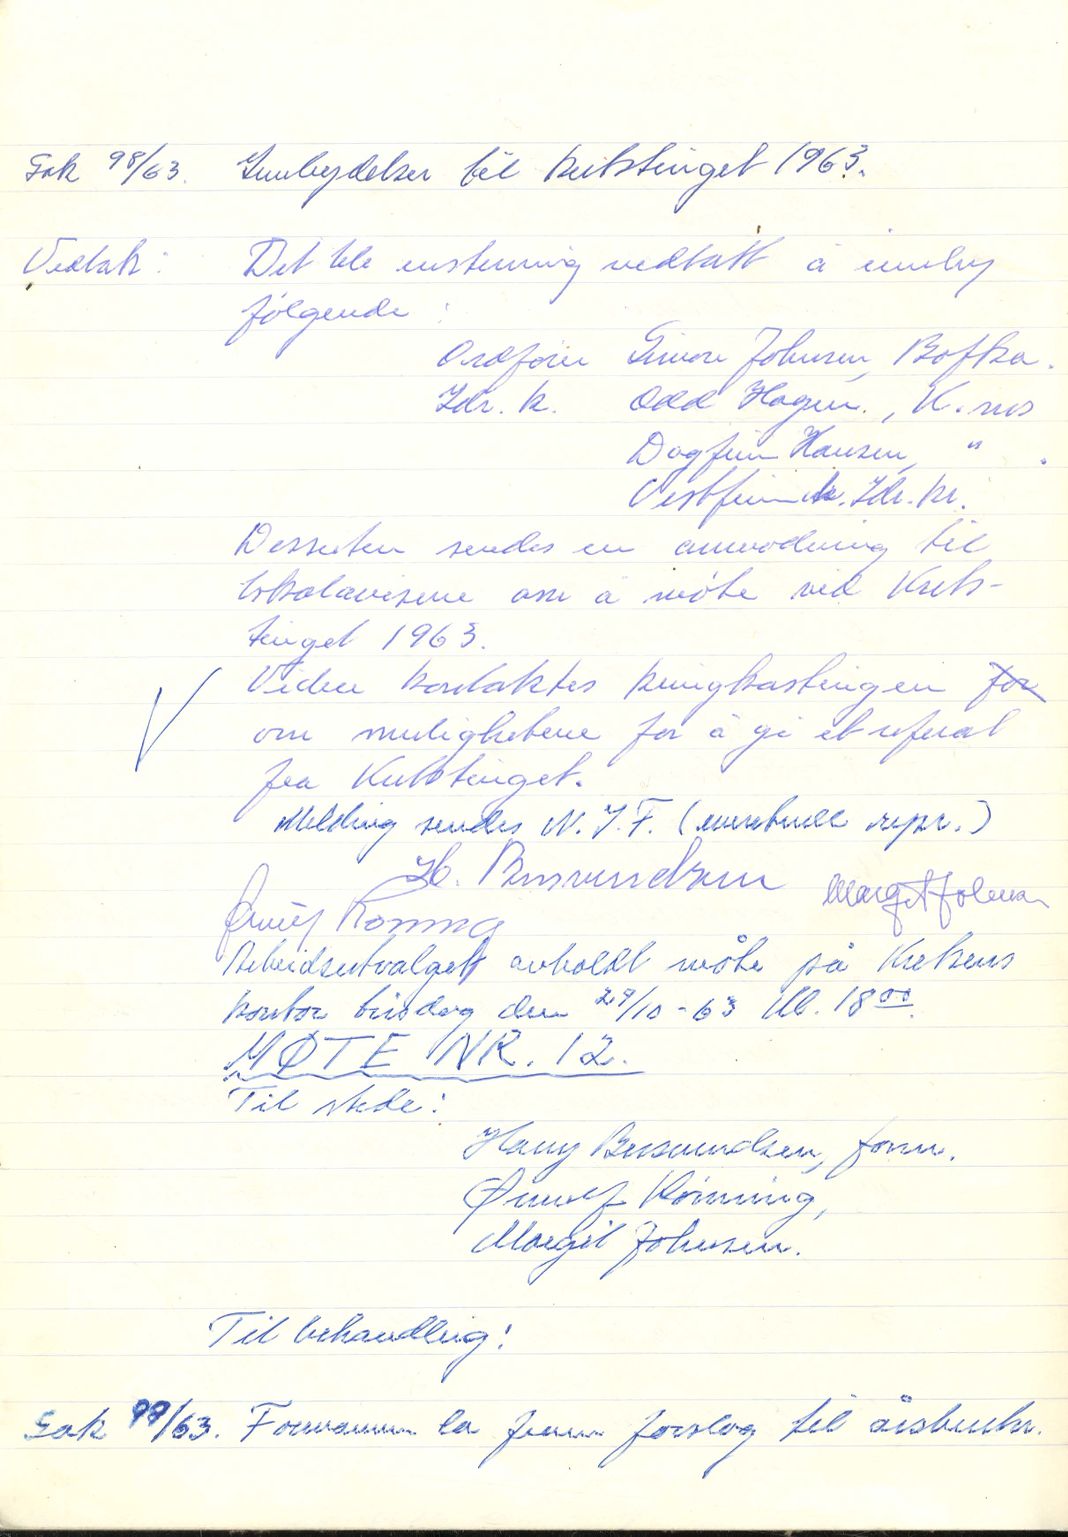 Sak 98/63. Innbydelser til kretstinget 1963.
Vedtak: Det ble enstemmig vedtatt å innby
følgende:
Ordfører Simon Johnsen, Bossekop.
Idr. k. Odd Hagen, K.nes
Dagfinn Hansen, " .
Vestfinnm. Idr. kr.
Dessuten sendes en anmodning til
lokalavisene om å møte ved Krets-
tinget 1963.
Videre kontaktes kringkastingen for
om mulighetene for å gi et referat
fra Kretstinget.
Melding sendes N.I.F. (eventuell repr.)
H. Berntsen Margit Johnsen
Arbeidsutvalget avholdt møte på Kretsens
kontor tirsdag den 29/10-63 kl. 18 00.
MØTE NR. 12.
Til stede:
Harry, form.
Ørnulf Rønning,
Margit Johnsen.
Til behandling:
Sak 99/63. Formannen la frem forslag til årsberetn.